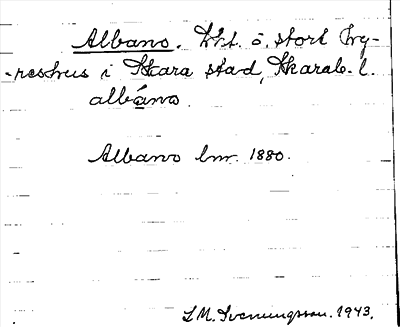 Albano. Kvt. o. stort hy-
-reshus i Skara stad, Skarab. l.
albáno
Albano lm. 1880.
L M. Svenungsson. 1943.